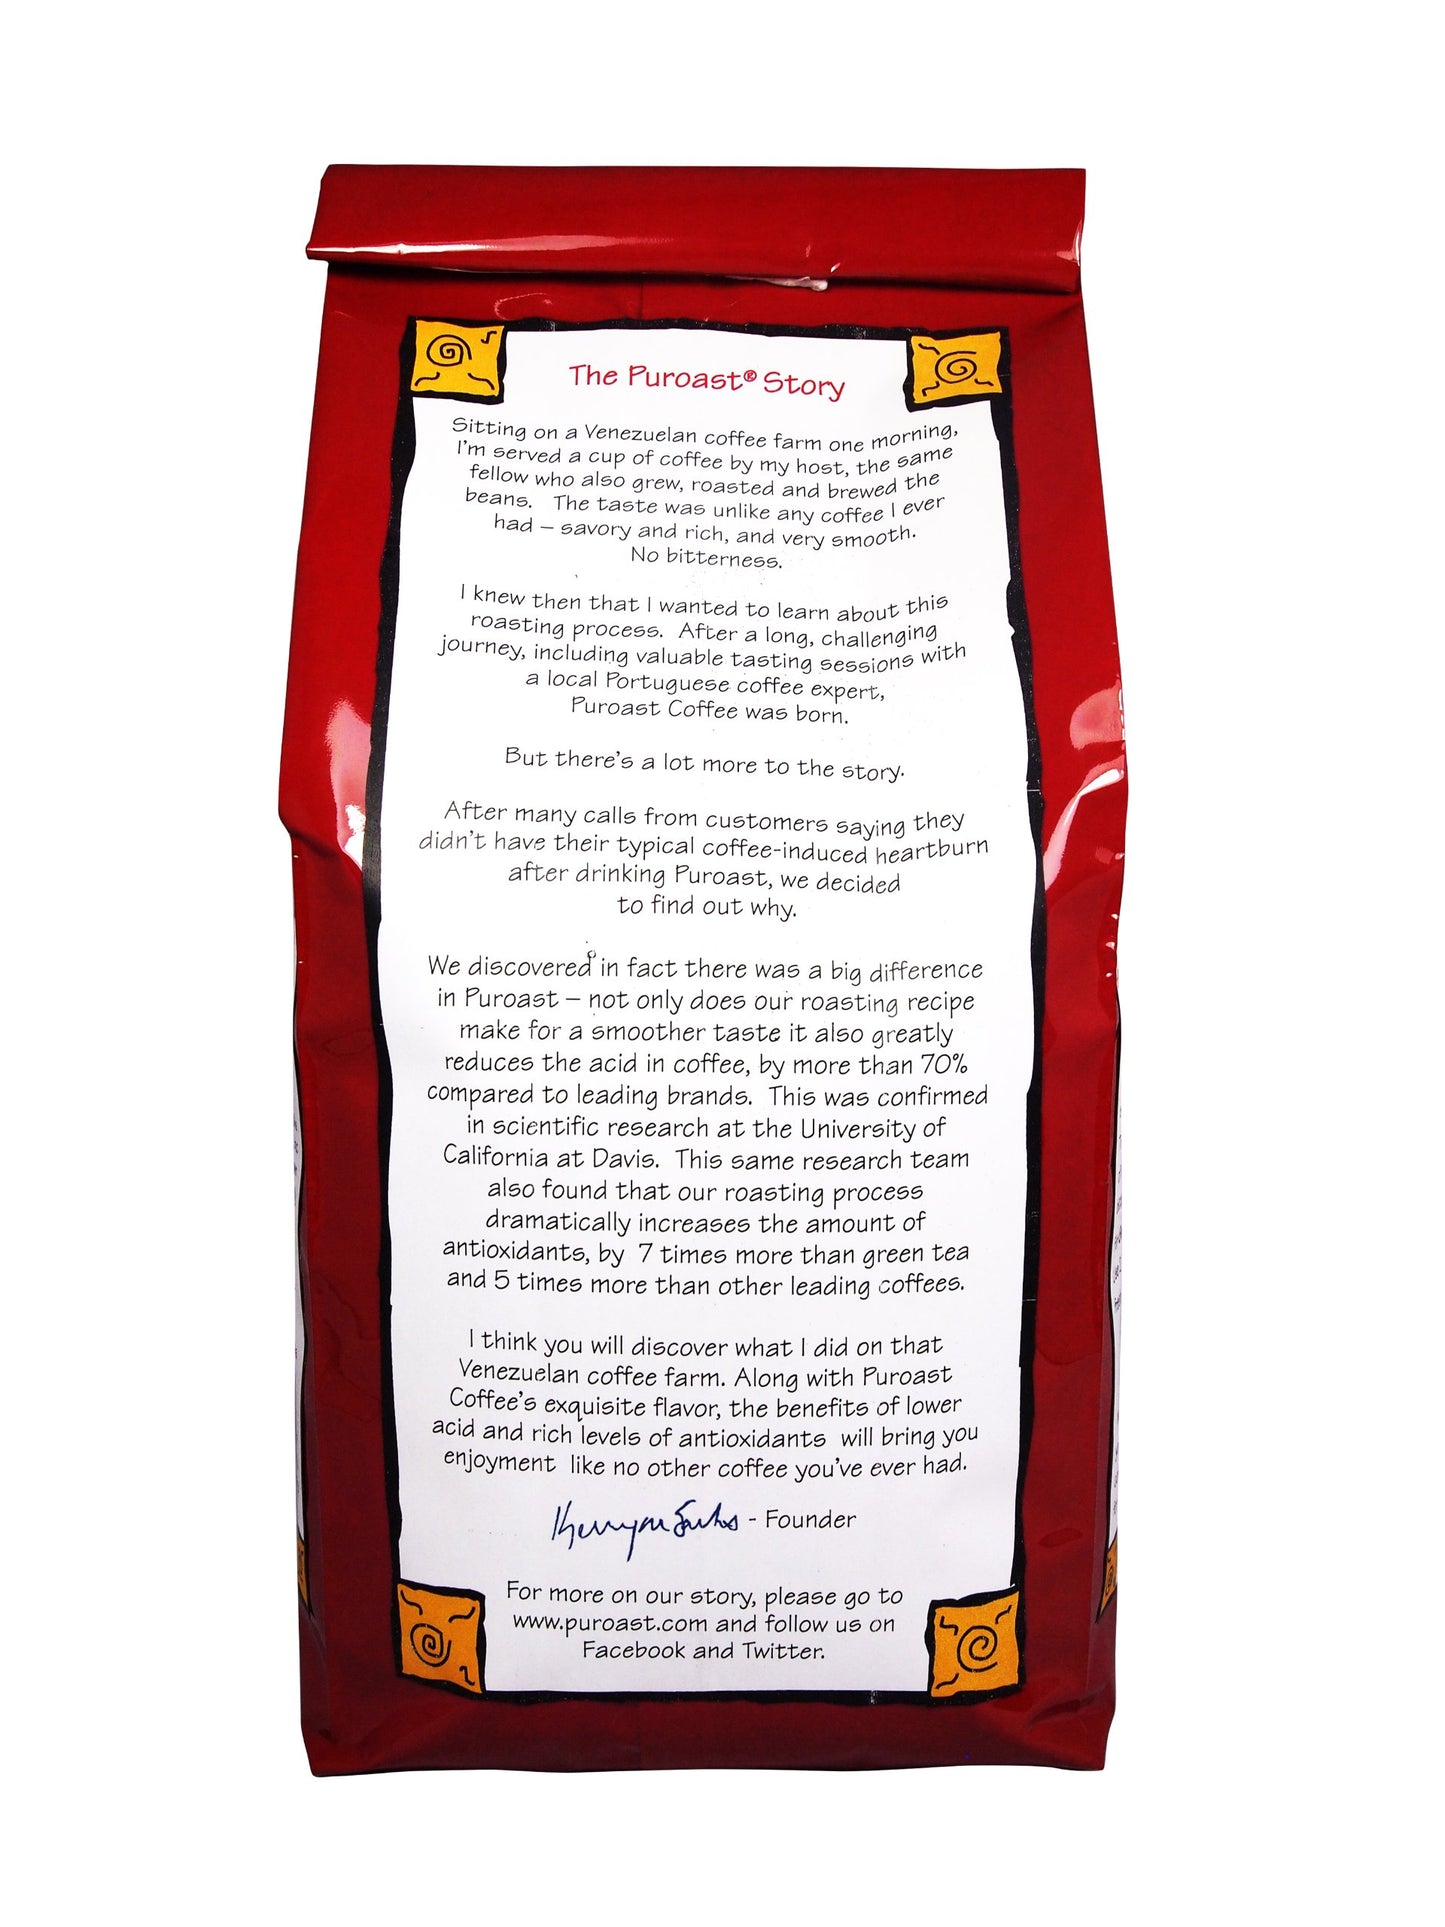 The Puroast® Story
Sitting on a Venezuelan coffee farm one morning,
I'm served a cup of coffee by my host, the same
fellow who also grew, roasted and brewed the
beans. The taste was unlike any coffee I ever
had – savory and rich, and very smooth.
No bitterness.
I knew then that I wanted to learn about this
roasting process. After a long, challenging
journey, including valuable tasting sessions with
a local Portuguese coffee expert,
Puroast Coffee was born.
But there's a lot more to the story.
After many calls from customers saying they
didn't have their typical coffee-induced heartburn
after drinking Puroast, we decided
to find out why.
We discovered in fact there was a big difference
in Puroast – not only does our roasting recipe
make for a smoother taste it also greatly
reduces the acid in coffee, by more than 70%
compared to leading brands. This was confirmed
in scientific research at the University of
California at Davis. This same research team
also found that our roasting process
dramatically increases the amount of
antioxidants, by 7 times more than green tea
and 5 times more than other leading coffees.
I think you will discover what I did on that
Venezuelan coffee farm. Along with Puroast
Coffee's exquisite flavor, the benefits of lower
acid and rich levels of antioxidants will bring you
enjoyment like no other coffee you've ever had.
- Founder
For more on our story, please go to
www.puroast.com and follow us on
Facebook and Twitter.